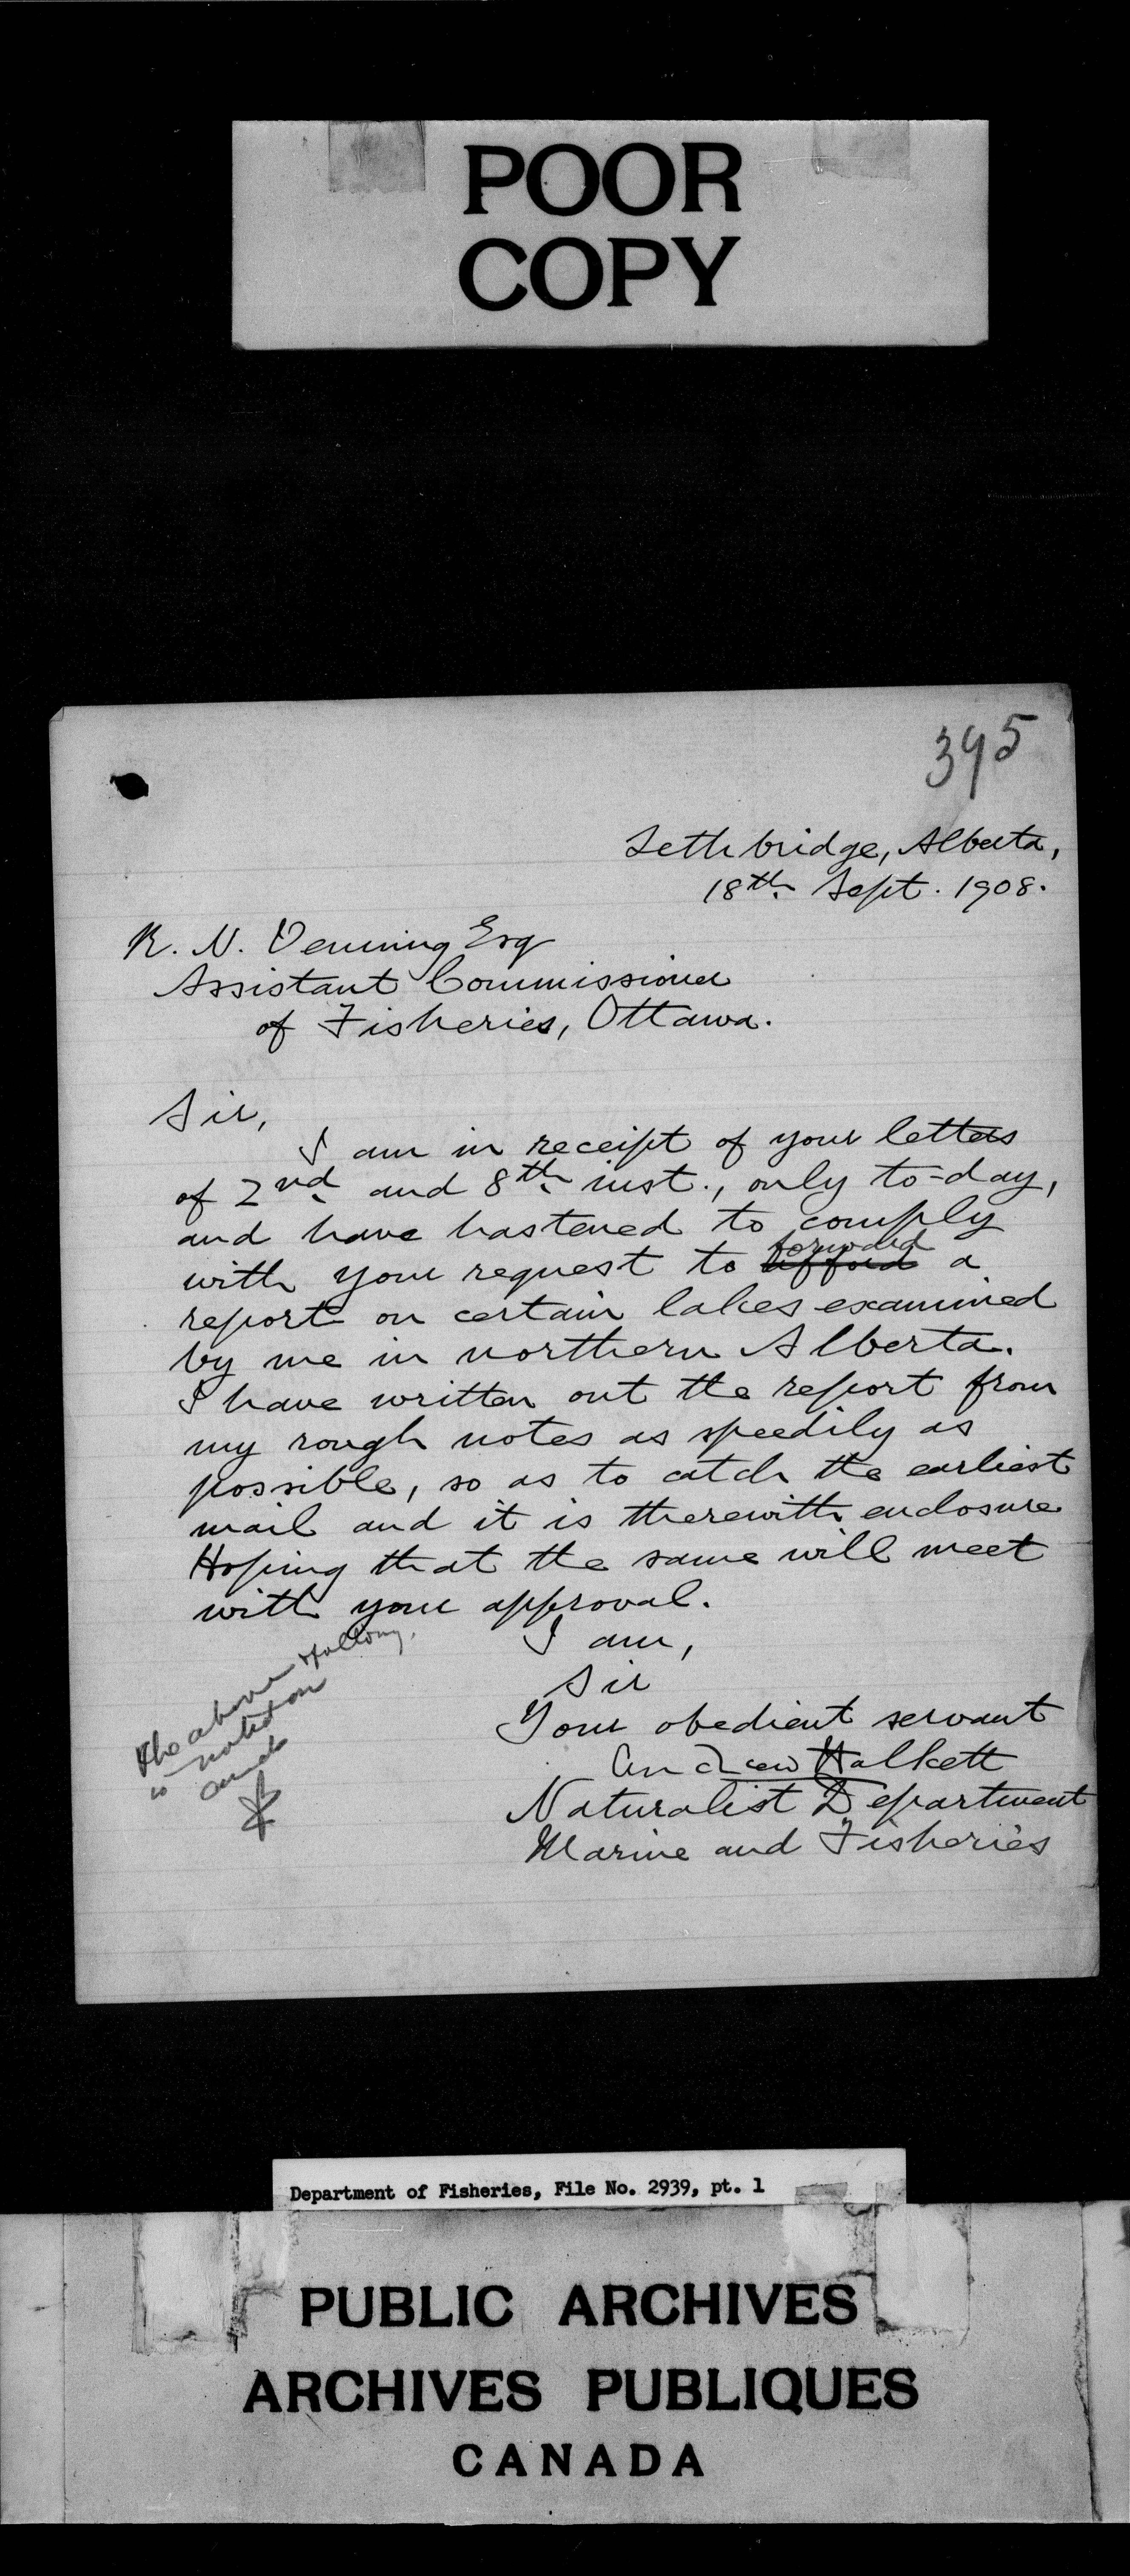 POOR
COPY
395
Lethbridge, Alberta,
18th Sept. 1908.
R. N. Venning Esq
Assistant Commissioner
of Fisheries, Ottawa.
Sir,
I am in receipt of your letters
of 2nd and 8th inst., only to-day,
and have hastened to comply
forward
with your request to afford a
report on certain lakes examined
by me in northern Alberta.
I have written out the report from
my rough notes as speedily as
possible, so as to catch the earliest
mail and it is therewith enclosure
Hoping that the same will meet
with your approval.
I am,
Sir
Your obedient servant
Andrew Halkett
Naturalist Department
Marine and Fisheries
The above
is noted on
Department of Fisheries, File No. 2939, pt. 1
PUBLIC ARCHIVES
ARCHIVES PUBLIQUES
CANADA